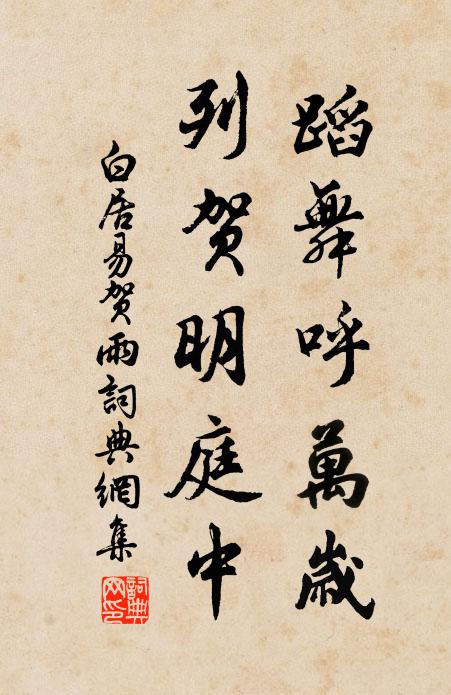 蹈舞呼萬歲
列賀明庭中
白居易賀雨詞典網集
詞典網印